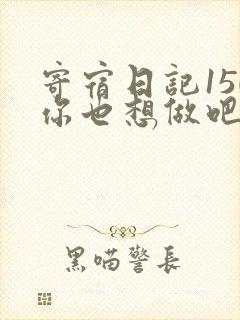 寄宿日記15
你也想做吧
黑喵警长